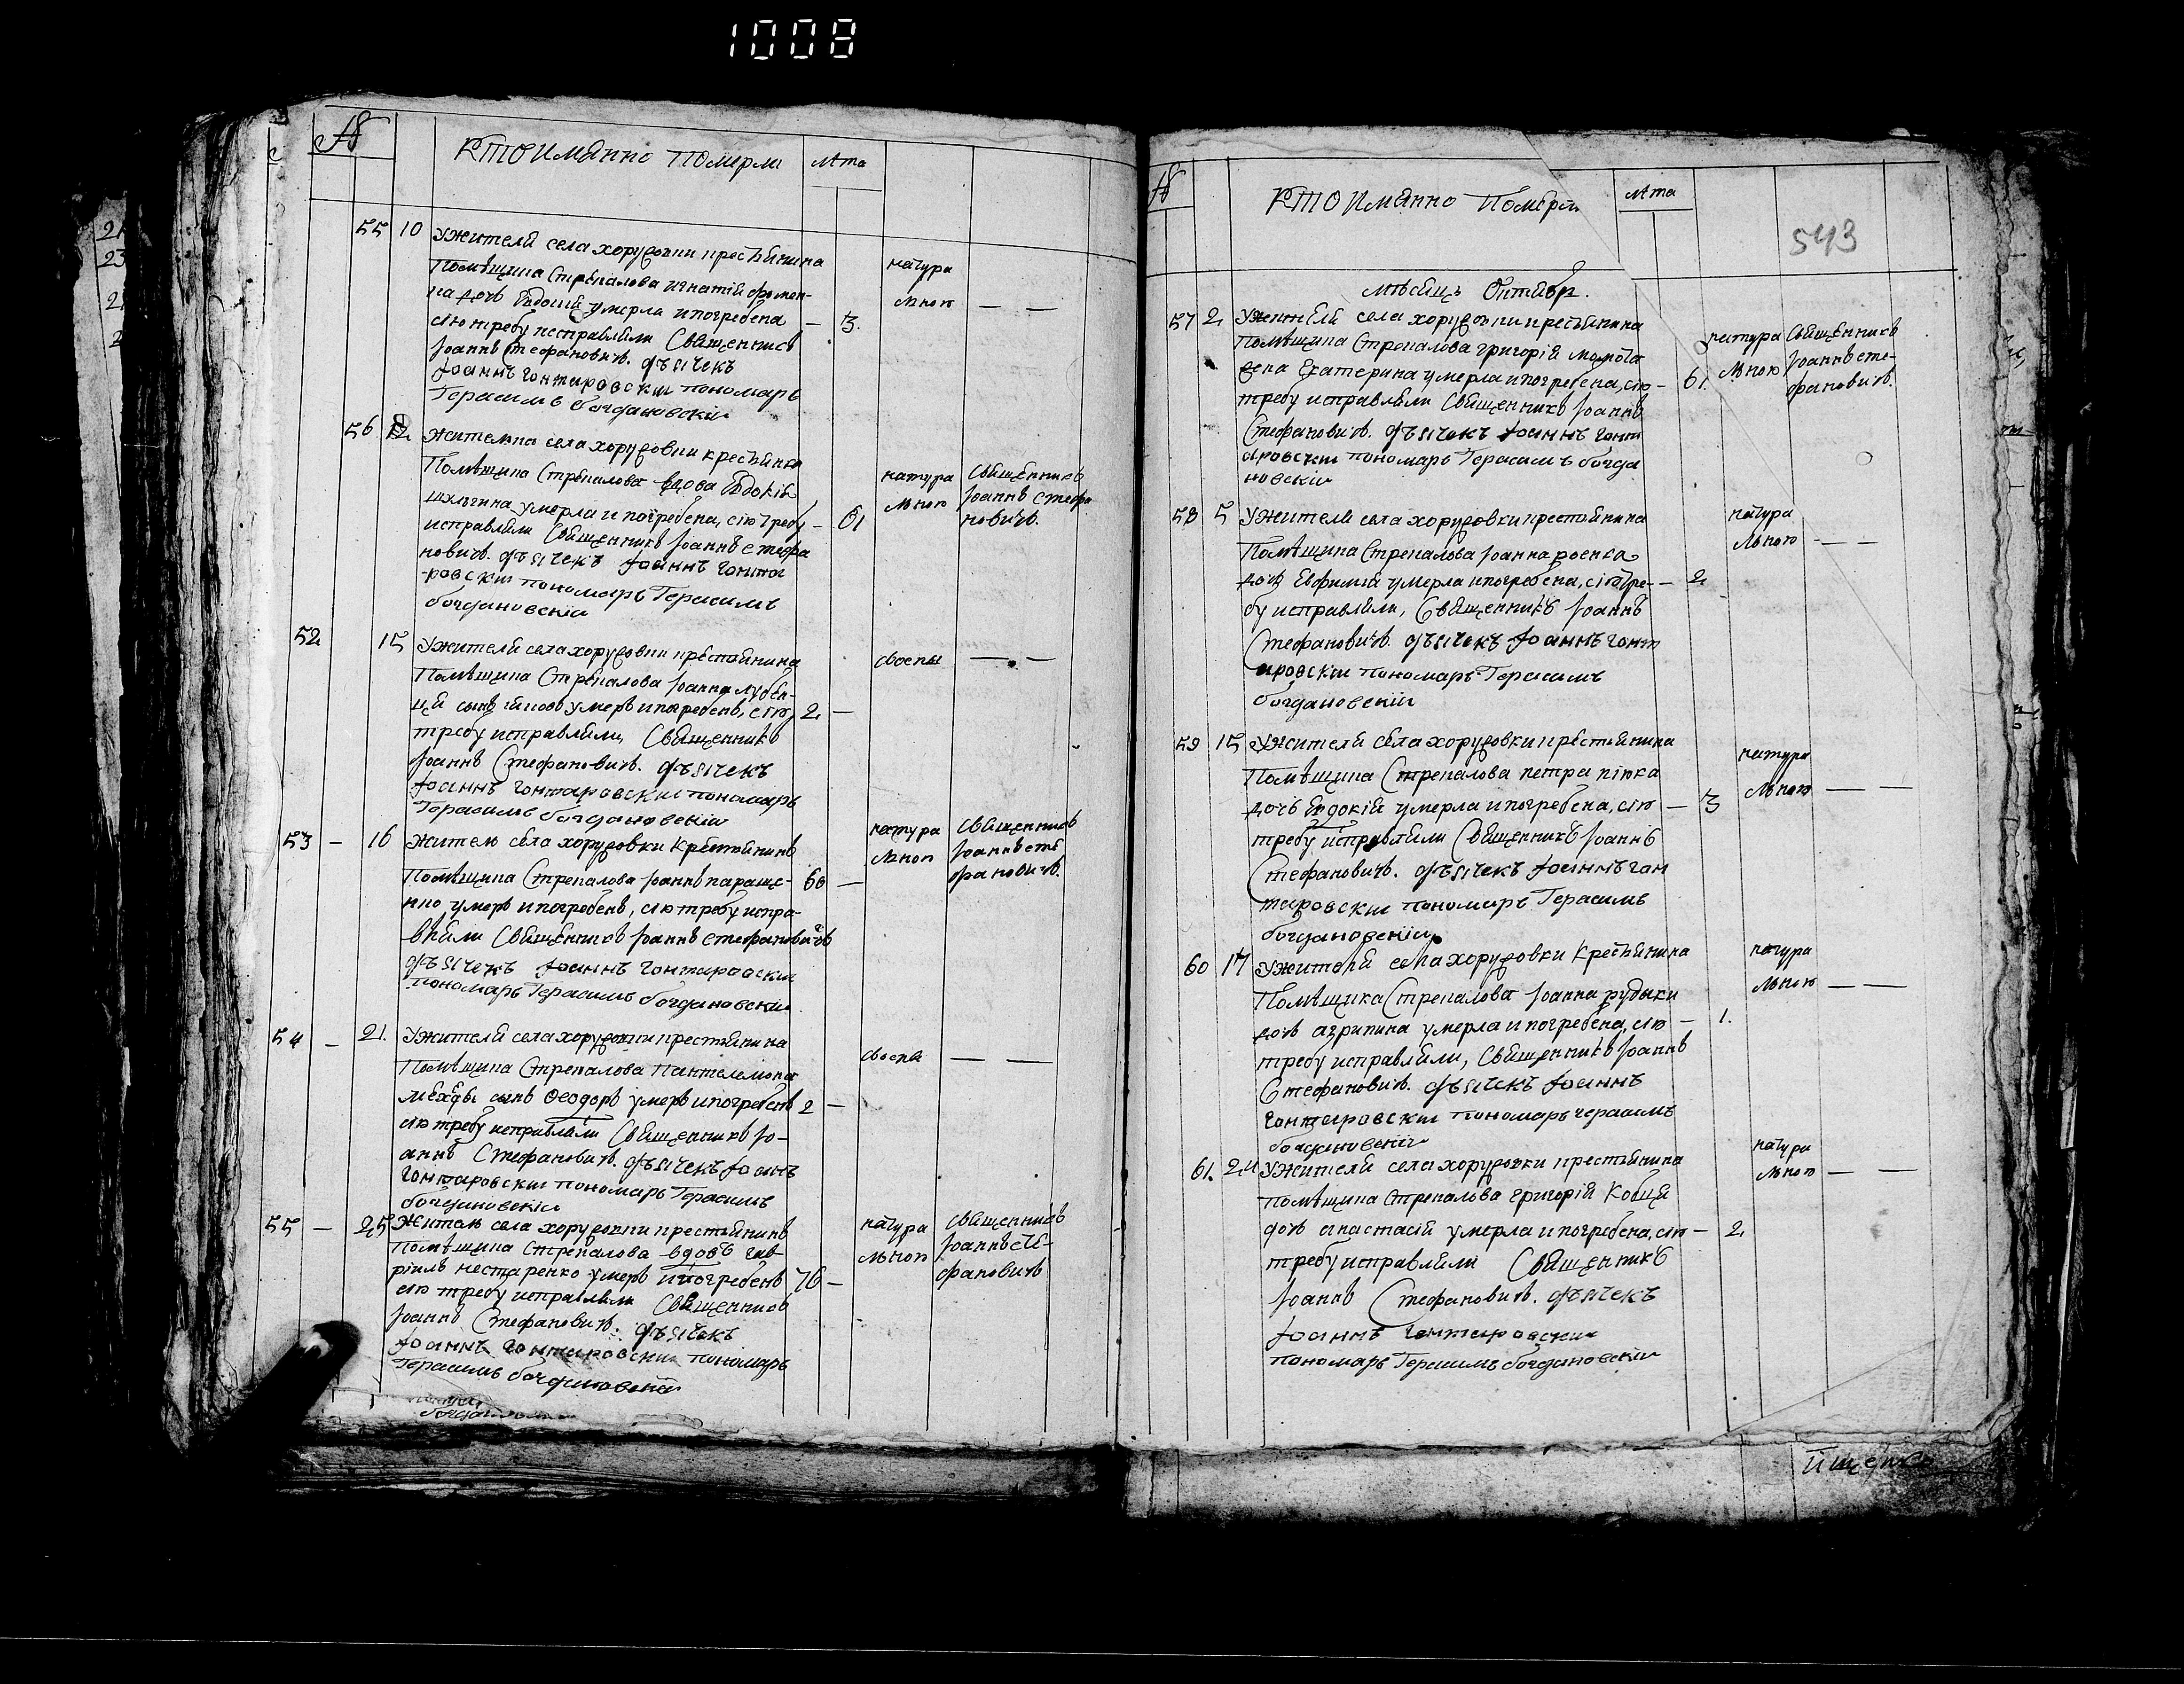 1008
№ Кто имянно померли лѣта
55 10 У жителя села хоружовки крестьянина
помѣщика Стрепалова игнатія фомен-
ка дочь Евдокія умерла и погребена — 3.
сію требу исправляли Священникъ
Іоаннъ Стефановичъ. дьячекъ
Іоаннъ Гонтаровскій пономарь
Герасимъ богдановскій
натура
льною — —
56 12 жителька села хоружовки крестьянка
Помѣщика Стрепалова вдова Евдокія
умерла и погребена, сію требу — 61
исправляли Священникъ Іоаннъ Стефа
новичъ. дьячекъ Іоаннъ Гонта
-ровскій пономарь Герасимъ
богдановскій
натура Священникъ
льною Іоаннъ Стефа
новичъ.
52 15 У жителя села хоружовки крестьянина
Помѣщика Стрепалова Іоанна лубен-
сынъ умеръ и погребенъ, сію 2 —
требу исправляли, Священникъ
Іоаннъ Стефановичъ. дьячекъ
Іоаннъ Гонтаровскій пономарь
Герасимъ богдановскій
воспы — —
53 — 16 житель села хоружовки крестьянинъ
Помѣщика Стрепалова Іоаннъ параще- 60 —
нко умеръ и погребенъ, сію требу испра-
вляли Священникъ Іоаннъ Стефановичъ
дьячекъ Іоаннъ Гонтаровскій
пономарь Герасимъ богдановскій
натура Священникъ
льною Іоаннъ Сте
фановичъ.
54 — 21. У жителя села хоружовки крестьянина
Помѣщика Стрепалова Пантелеимона
сынъ Ѳеодоръ умеръ и погребенъ 2 —
сію требу исправляли Священникъ Іо-
аннъ Стефановичъ. дьячекъ Іоаннъ
Гонтаровскій пономарь Герасимъ
богдановскій
воспы — —
55 — 25 житель села хоружовки крестьянинъ
помѣщика Стрепалова вдовъ гав-
ріилъ нестаренко умеръ и погребенъ 76 —
сію требу исправляли Священникъ
Іоаннъ Стефановичъ. дьячекъ
Іоаннъ Гонтаровскій пономарь
Герасимъ богдановскій
натура Священникъ
льною Іоаннъ Сте-
фановичъ
№ Кто имянно Померли лѣта
543
мѣсяцъ Октябрь.
57 2 У жителя села хоружовки крестьянина
Помѣщика Стрепалова григорія
жена Екатерина умерла и погребена, сію — 61.
требу исправляли Священникъ Іоаннъ
Стефановичъ. дьячекъ Іоаннъ Гонт
аровскій пономарь Герасимъ богда
новскій
натура Священникъ
льною Іоаннъ Сте-
фановичъ.
58 5 У жителя села хоружовки крестьянина
Помѣщика Стрепалова Іоанна роенка
дочь Евфимія умерла и погребена, сію тре- — 2
бу исправляли, Священникъ Іоаннъ
Стефановичъ. дьячекъ Іоаннъ Гонт
аровскій пономарь Герасимъ
богдановскій
натура
льною — —
59 15 У жителя села хоружовки крестьянина
Помѣщика Стрепалова петра пінка
дочь Евдокія умерла и погребена, сію — 3
требу исправляли Священникъ Іоаннъ
Стефановичъ. дьячекъ Іоаннъ Гон
таровскій пономарь Герасимъ
богдановскій
натура
льною — —
60 17 У жителя села хоружовки Крестьянина
Помѣщика Стрепалова Іоанна рудыки
дочь агрипина умерла и погребена, сію — 1.
требу исправляли, Священникъ Іоаннъ
Стефановичъ. дьячекъ Іоаннъ
Гонтаровскій пономарь Герасимъ
богдановскій
натура
льною — —
61. 24 У жителя села хоружовки крестьянина
помѣщика Стрепалова григорія
дочь анастасія умерла и погребена, сію — 2
требу исправляли Священникъ
Іоаннъ Стефановичъ. дьячекъ
Іоаннъ Гонтаровскій
пономарь Герасимъ богдановскій
натура
льною — —